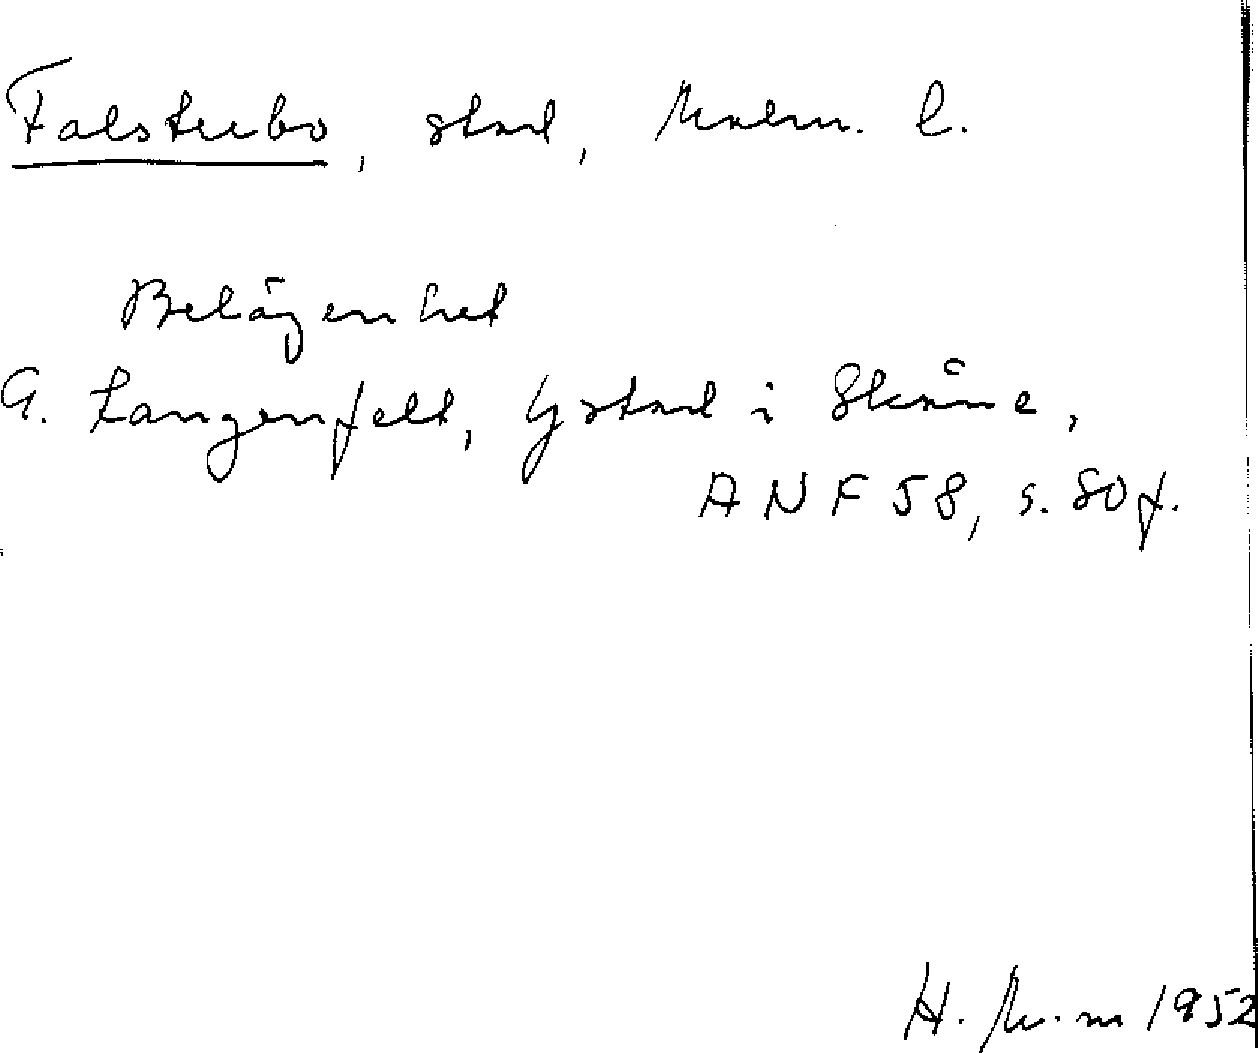 Falsterbo, stad, Malm. l.
Belägenhet
G. Langenfelt, Ystad i Skåne,
ANF 58, s. 80 f.
H. M.-m 1952